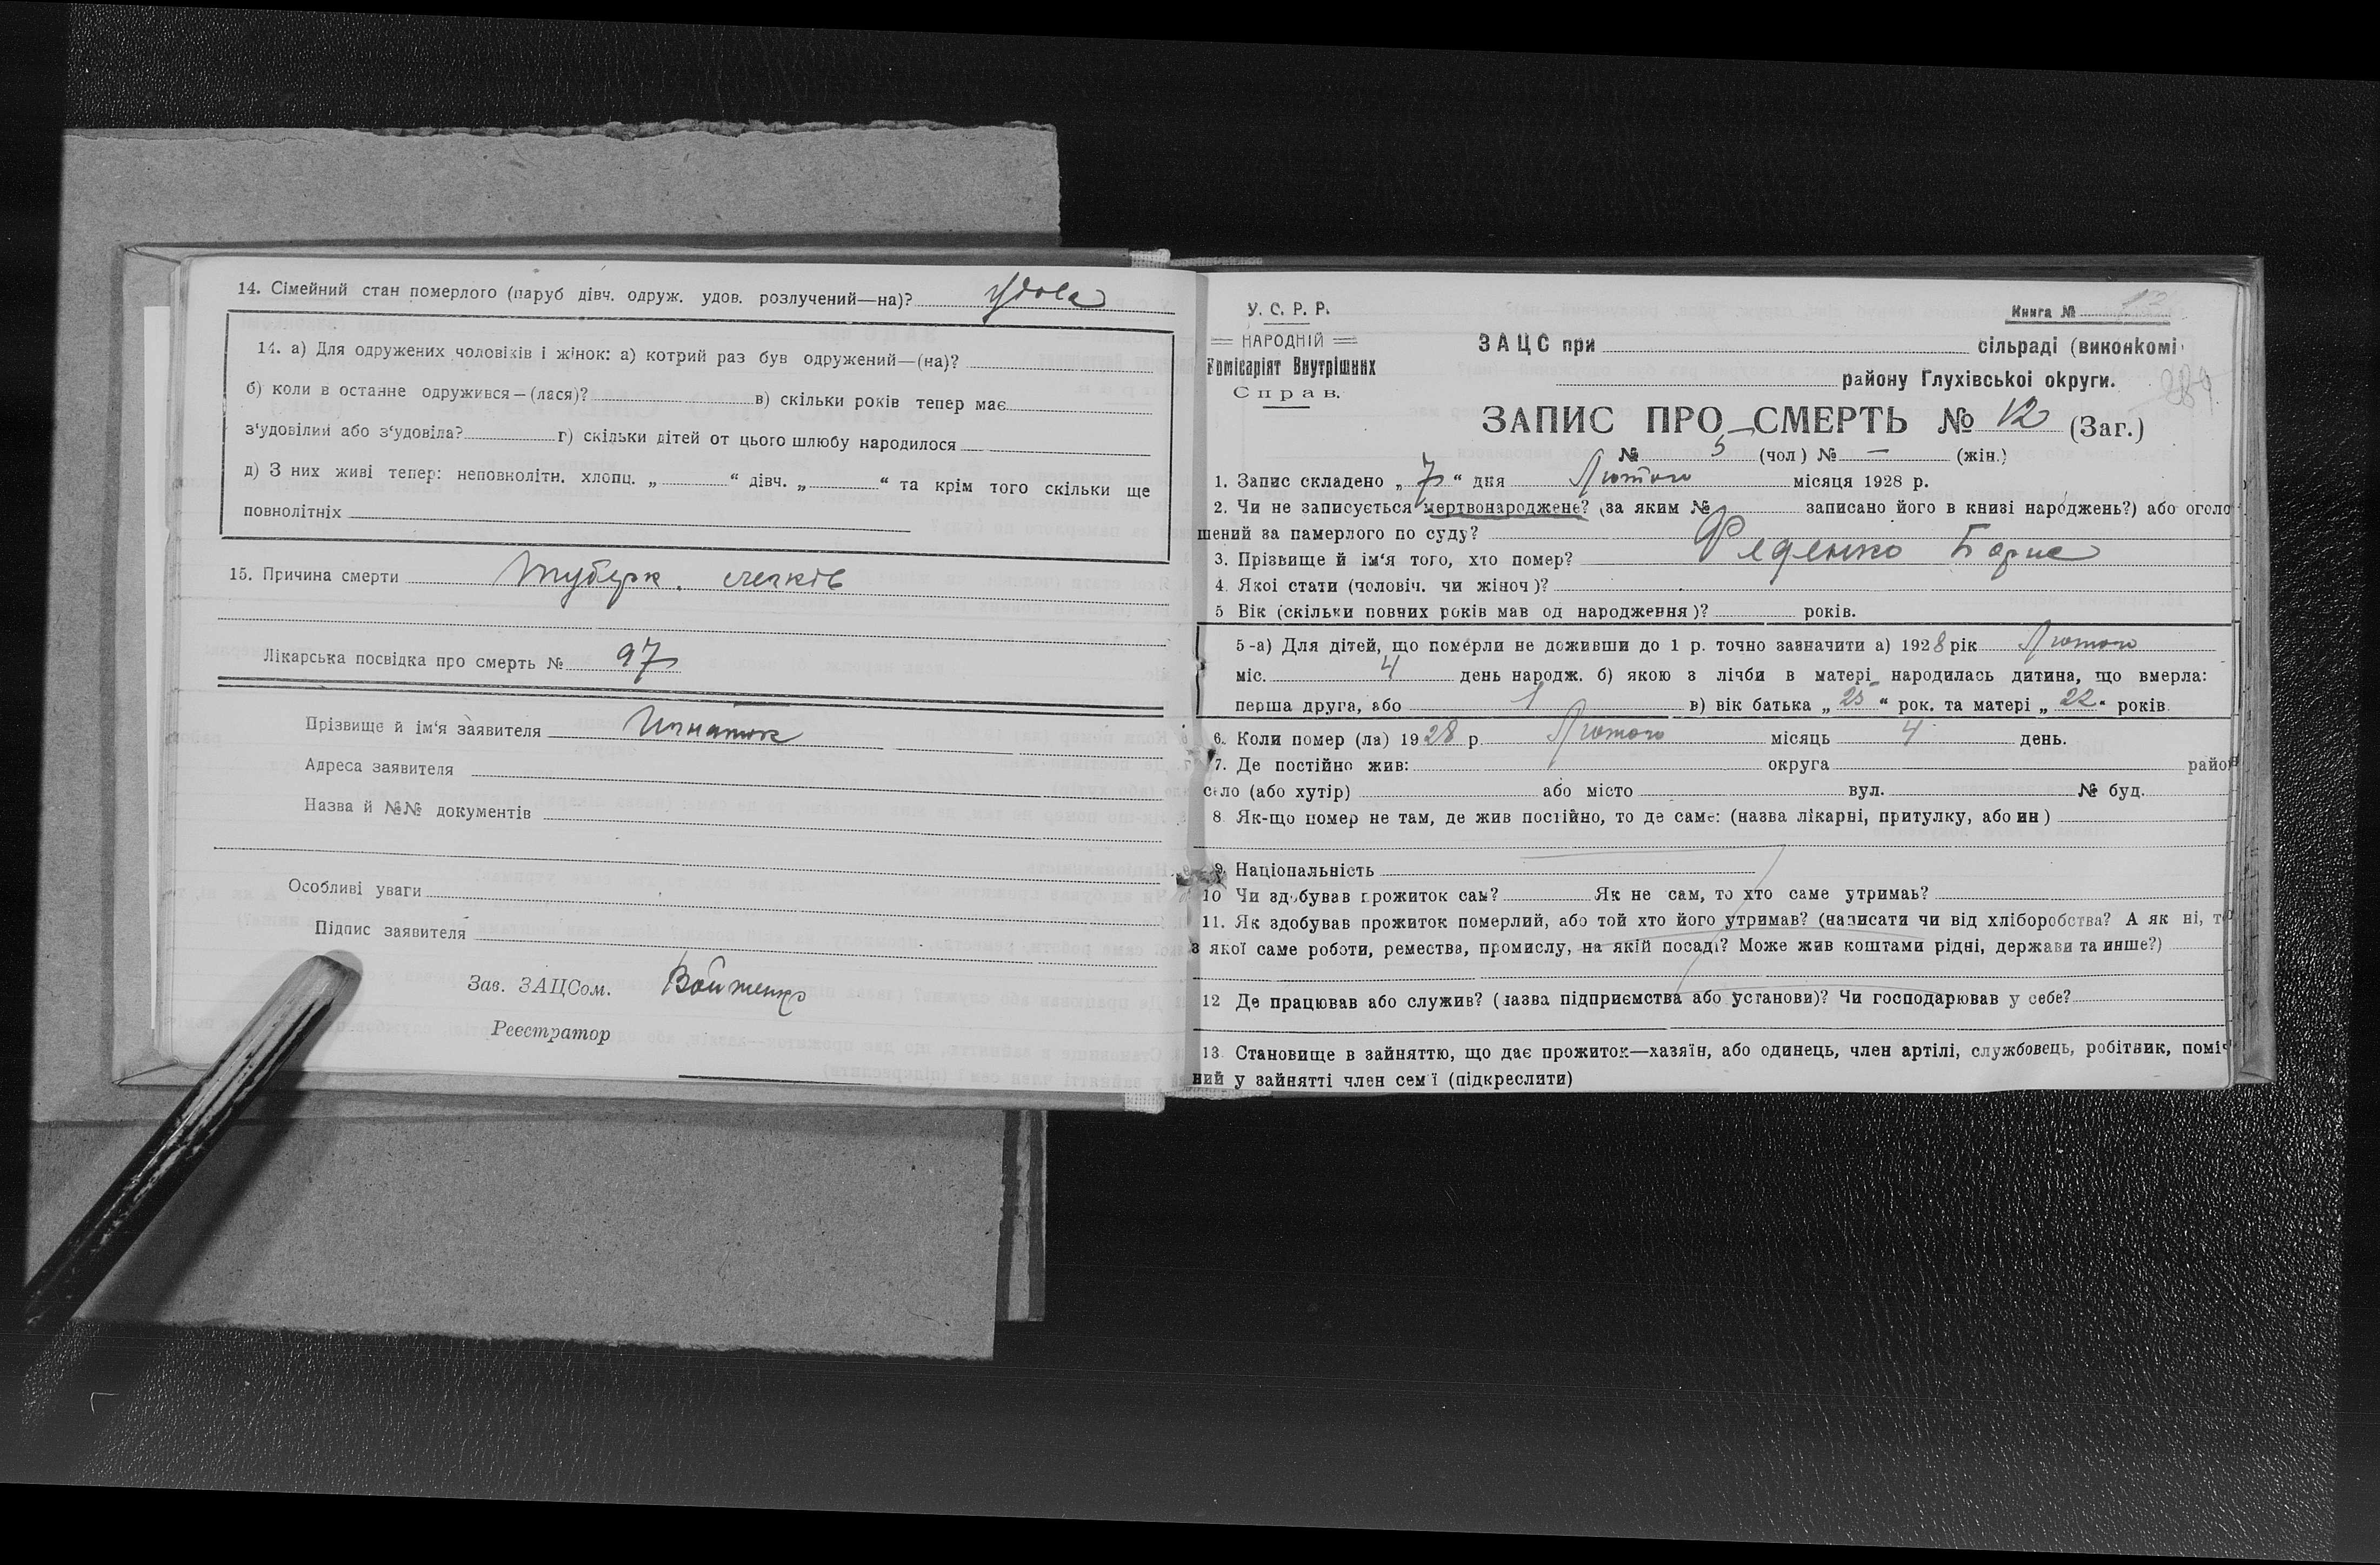 14. Сімейний стан померлого (паруб дівч. одруж. удов. розлучений—на)? удова
14. а) Для одружених чоловіків і жінок: а) котрий раз був одружений—(на)?
б) коли в останне одружився—(лася)? в) скільки років тепер має
з'удовілий або з'удовіла? г) скільки дітей от цього шлюбу народилося
д) З них живі тепер: неповнолітн. хлопц. „ “ дівч. „ “ та крім того скільки ще
повнолітніх
15. Причина смерти туберк. легків
Лікарська посвідка про смерть № 97
Прізвище й ім'я заявителя
Адреса заявителя
Назва й №№ документів
Особливі уваги
Підпис заявителя
Зав. ЗАЦСом.
Реєстратор
У. С. Р. Р.
НАРОДНІЙ
Комісаріят Внутрішних
Справ.
Книга №
ЗАЦС при сільраді (виконкомі
району Глухівської округи.
ЗАПИС ПРО СМЕРТЬ № 12 (Заг.)
№ 5 (чол) № — (жін.)
1. Запис складено „ 7 “ дня Лютого місяця 1928 р.
2. Чи не записується мертвонароджене? (за яким № записано його в книзі народжень?) або оголо
шений за памерлого по суду?
3. Прізвище й ім'я того, хто помер? Феденко Борис
4. Якої стати (чоловіч. чи жіноч)?
5 Вік (скільки повних років мав од народження)? років.
5-а) Для дітей, що померли не доживши до 1 р. точно зазначити а) 1928 рік Лютого
міс. 4 день народж. б) якою з лічби в матері народилась дитина, що вмерла:
перша друга, або 1 в) вік батька „ 25 “ рок. та матері „ 22 “ років
6. Коли помер (ла) 1928 р. Лютого місяць 4 день.
7. Де постійно жив: округа район
село (або хутір) або місто вул. № буд.
8 Як-що помер не там, де жив постійно, то де саме: (назва лікарні, притулку, або ин)
9 Національність
10 Чи здобував прожиток сам? Як не сам, то хто саме утримав?
11. Як здобував прожиток померлий, або той хто його утримав? (написати чи від хліборобства? А як ні, то
з якої саме роботи, ремества, промислу, на якій посаді? Може жив коштами рідні, держави та инше?)
12 Де працював або служив? (назва підприємства або установи)? Чи господарював у себе?
13. Становище в зайняттю, що дає прожиток—хазяїн, або одинець, член артілі, службовець, робітник, поміч
ний у зайнятті член сем'ї (підкреслити)